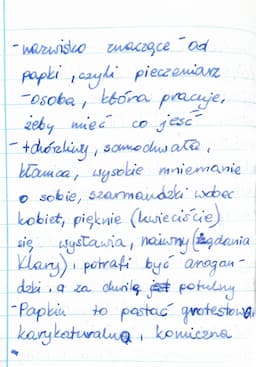 - nazwisko znaczące - od
papki, czyli pieczeniarz
- osoba, która pracuje,
żeby mieć co jeść
- tchórzliwy, samochwała,
kłamca, wysokie mniemanie
o sobie, szarmandzki wobec
kobiet, pięknie (kwieciście)
się wysławia, naiwny (żądania
Klary), potrafi być arogan-
dzki, a za chwilę jest potulny
- Papkin to postać groteskowa,
karykaturalna, komiczna